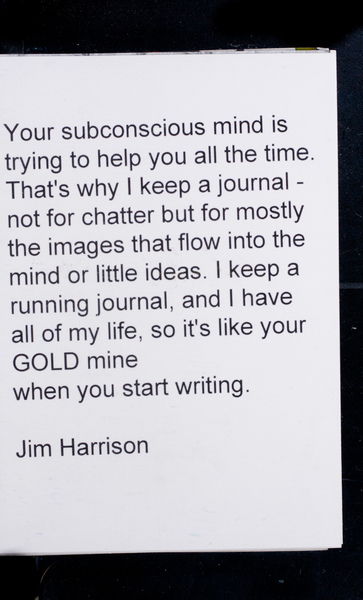 Your subconscious mind is
trying to help you all the time.
That's why I keep a journal -
not for chatter but for mostly
the images that flow into the
mind or little ideas. I keep a
running journal, and I have
all of my life, so it's like your
GOLD mine
when you start writing.
Jim Harrison